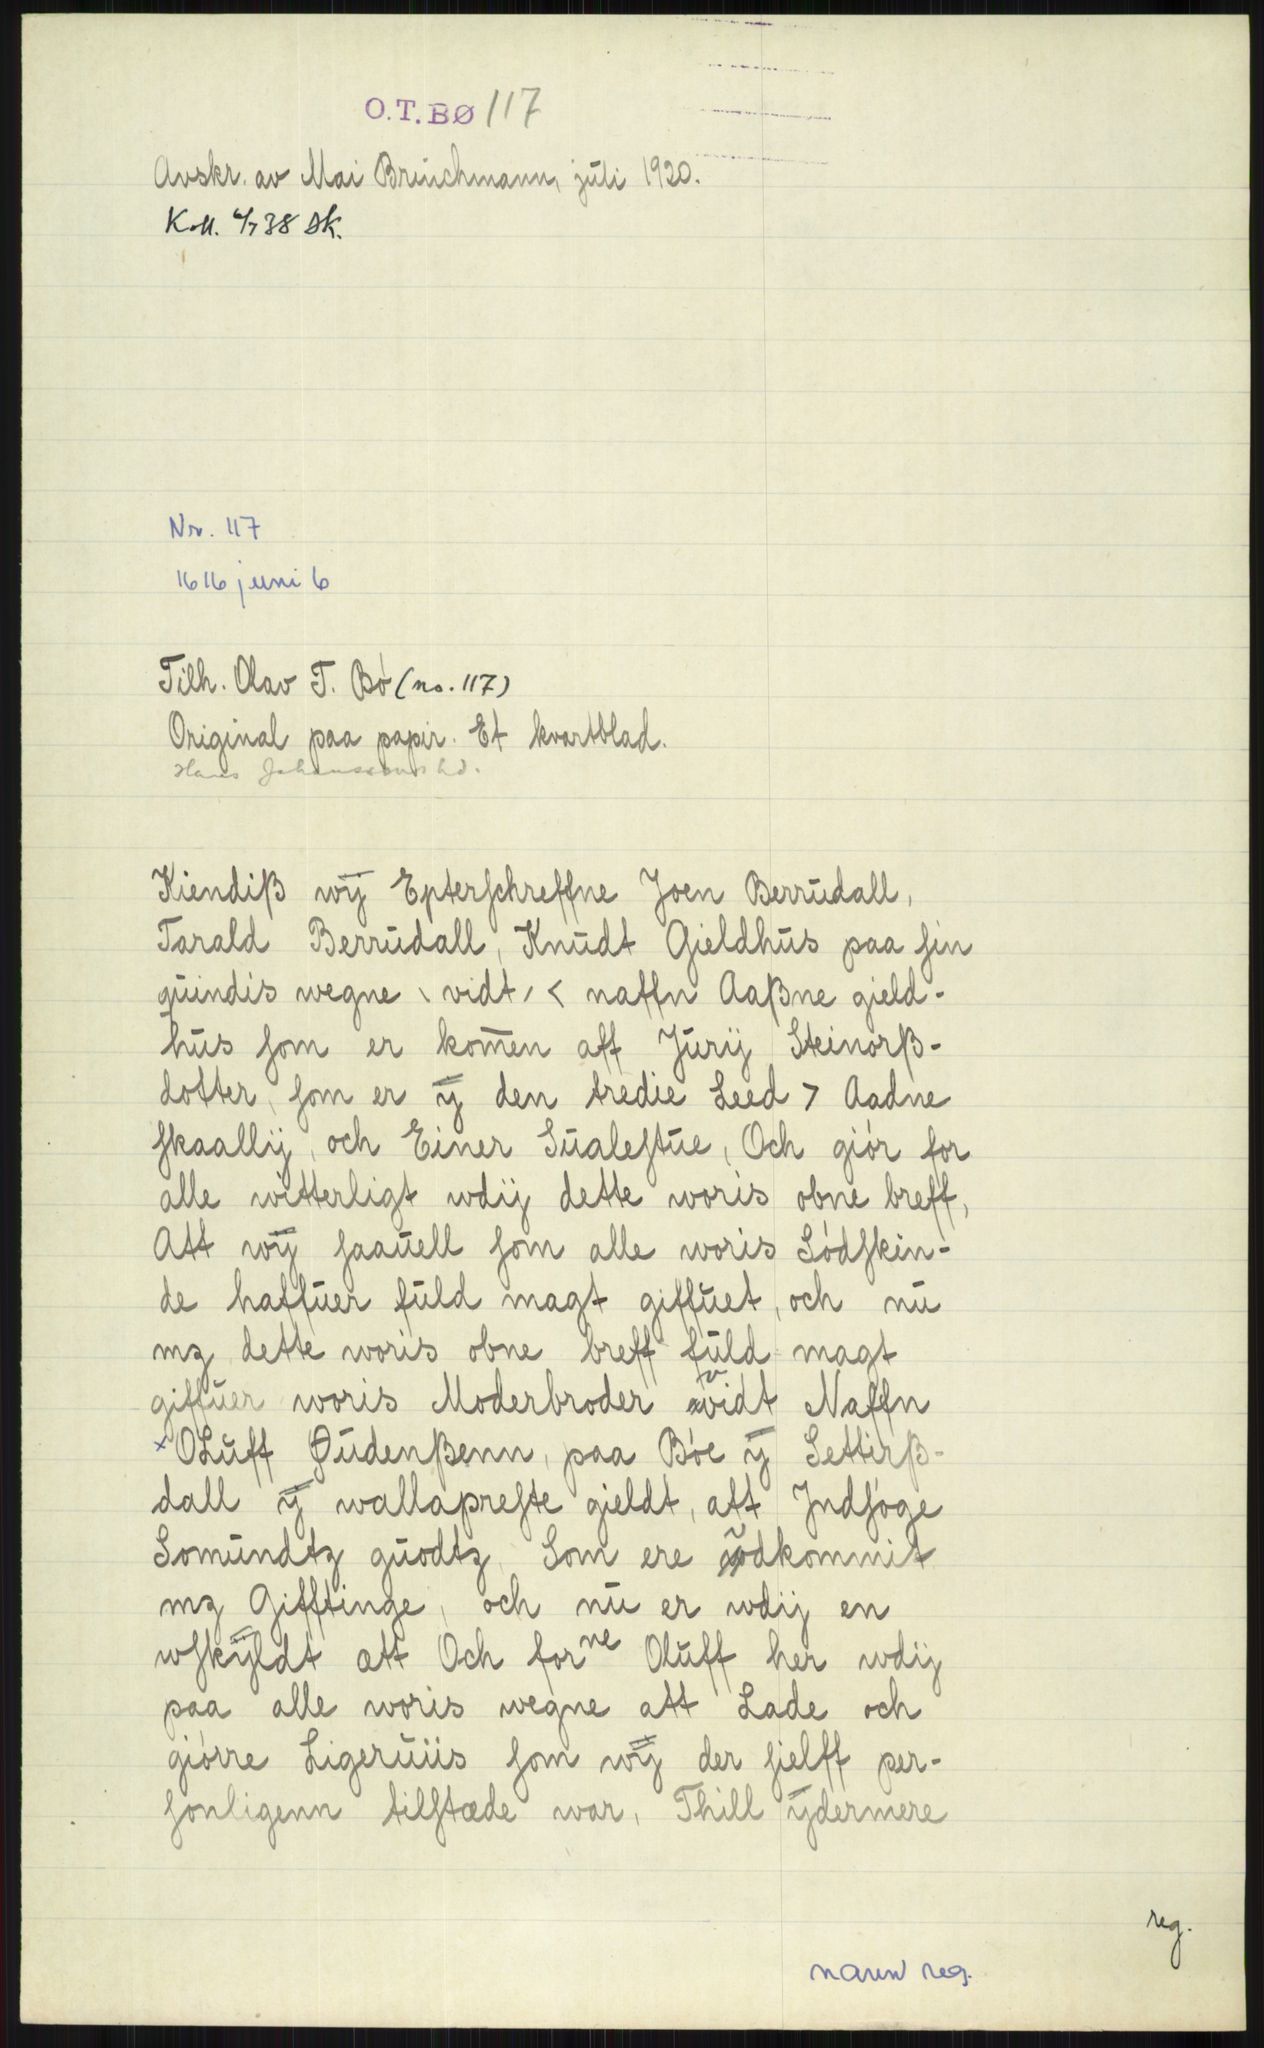 O.T.BØ/117
Avskr. av Mai Brüchmann, juli 1920.
Koll. 4/7 38 DK.
Nr. 117
1616 juni 6
Tilh. Olav T. Bö (no. 117)
Original paa papir. Et kvartblad.
Hans Johanssons hd.
Kiendiß wÿ Epterſchreffne Joen Berrŭdall,
Tarald Berrŭdall, Knŭdt Gieldhŭs paa ſin
qŭindis wegne \ vidt / < naffn Aaßne gield-
hŭs ſom er kom̄en aff Jŭrij Steinorß-
dotter, ſom er ÿ den tredie Leed > Aadne
ſkaallij, och Einer Sŭaleſtŭe, Och giór for
alle witterligt wdij dette woris obne breff,
Att wÿ ſaaŭell ſom alle woris Södſkin-
de haffŭer fŭld magt giffŭet, och nŭ
mz dette woris obne breff fŭld magt
giffŭer woris Moderbroder vidt Naffn
× OLŭff Øŭdenßenn, paa Böe ÿ Settirß-
dall ÿ wallapreſte gieldt, att Jndſöge
Somŭndtz gŭodtz, Som ere ŭdkommit
mz Gifftinge, och nŭ er wdij en
wſkÿldt ætt Och forne Olŭff her wdij
paa alle woris wegne att Lade och
giörre Ligerŭiis ſom wÿ der ſielff per-
ſonligenn tilſtæde war, Thill ÿdermere
reg.
navn reg.